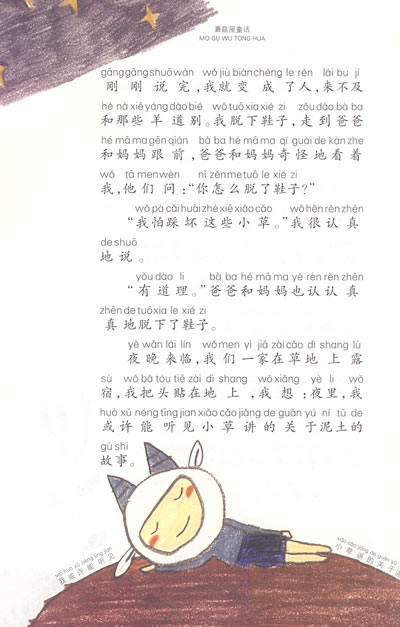 蘑菇屋童话
MO GU WU TONG HUA
gānggāngshuōwán wǒjiùbiànchéng le rén lái bu jí
刚刚说完，我就变成了人，来不及
hé nà xiēyáng dào bié wǒ tuō xia xié zi zǒu dào bà ba
和那些羊道别。我脱下鞋子，走到爸爸
hé mā ma gēn qián bà ba hé mā ma qí guài de kàn zhe
和妈妈跟前，爸爸和妈妈奇怪地看着
wǒ tā men wèn nǐ zěn me tuō le xié zi
我，他们问：“你怎么脱了鞋子？”
wǒ pà cǎi huài zhè xiē xiǎo cǎo wǒ hěn rèn zhēn
“我怕踩坏这些小草。”我很认真
de shuō
地说。
yǒu dào li bà ba hé mā ma yě rèn rèn zhēn
“有道理。”爸爸和妈妈也认认真
zhēn de tuō xia le xié zi
真地脱下了鞋子。
yè wǎn lái lín wǒ men yì jiā zài cǎo dì shang lù
夜晚来临，我们一家在草地上露
sù wǒ bǎ tóu tiē zài dì shang wǒ xiǎng yè li wǒ
宿，我把头贴在地上，我想：夜里，我
huò xǔ néng tīng jian xiǎo cǎo jiǎng de guān yú ní tǔ de
或许能听见小草讲的关于泥土的
gù shi
故事。
wǒ huò xǔ néng tīng jiàn
我或许能听见
xiǎo cǎo jiǎng de guān yú
小草讲的关于